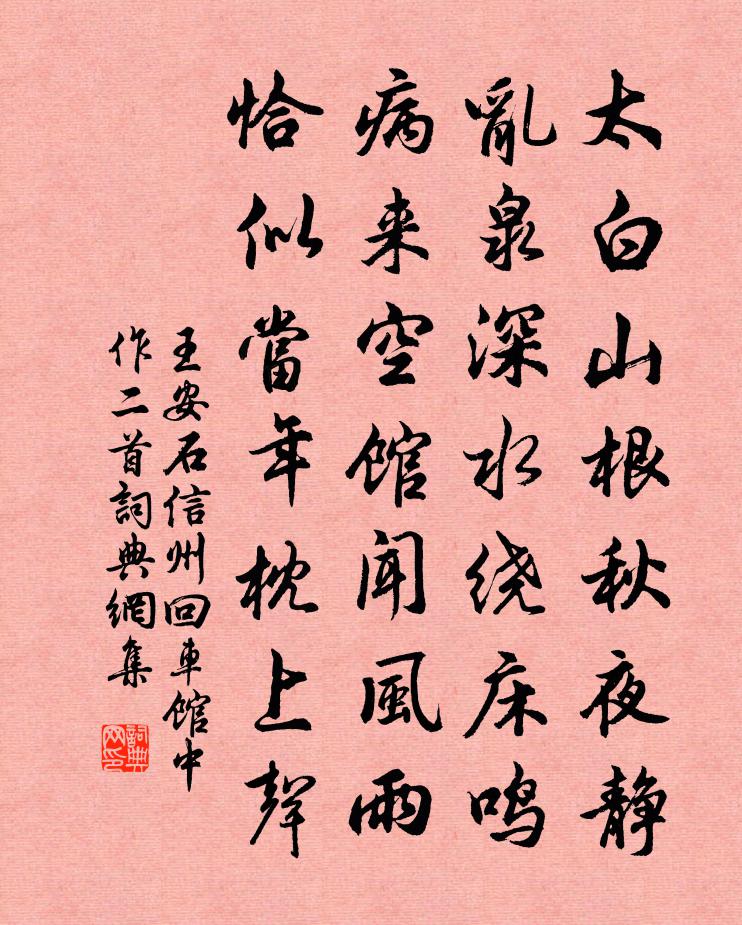 太白山根秋夜静
亂泉深水绕床鸣
病来空馆闻風雨
恰似當年枕上聲
王安石信州回車馆中
作二首詞典網集
詞典網印